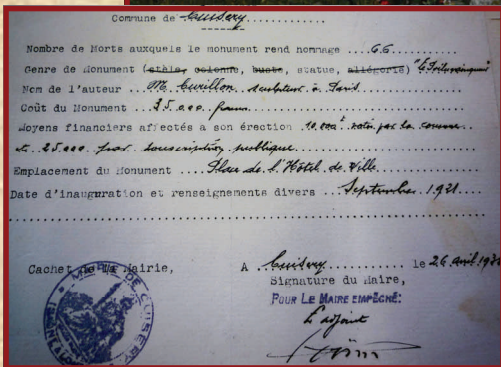 Commune de Cuisery
Nombre de Morts auxquels le monument rend hommage ... 66
Genre de Monument (stèle, colonne, buste, statue, allégorie) "le Poilu vainqueur"
Nom de l'auteur ... M. Curillon, sculpteur à Paris
Coût du Monument ... 35.000 francs
Moyens financiers affectés a son érection 10.000f votés par la commune
et 25000 par souscription publique
Emplacement du Monument ... Place de l'Hôtel de Ville
Date d'inauguration et renseignements divers ... Septembre 1921
Cachet de la Mairie,
A Cuisery le 26 avril
Signature du Maire,
POUR LE MAIRE EMPÊCHÉ:
L'adjoint
MAIRIE DE CUISERY